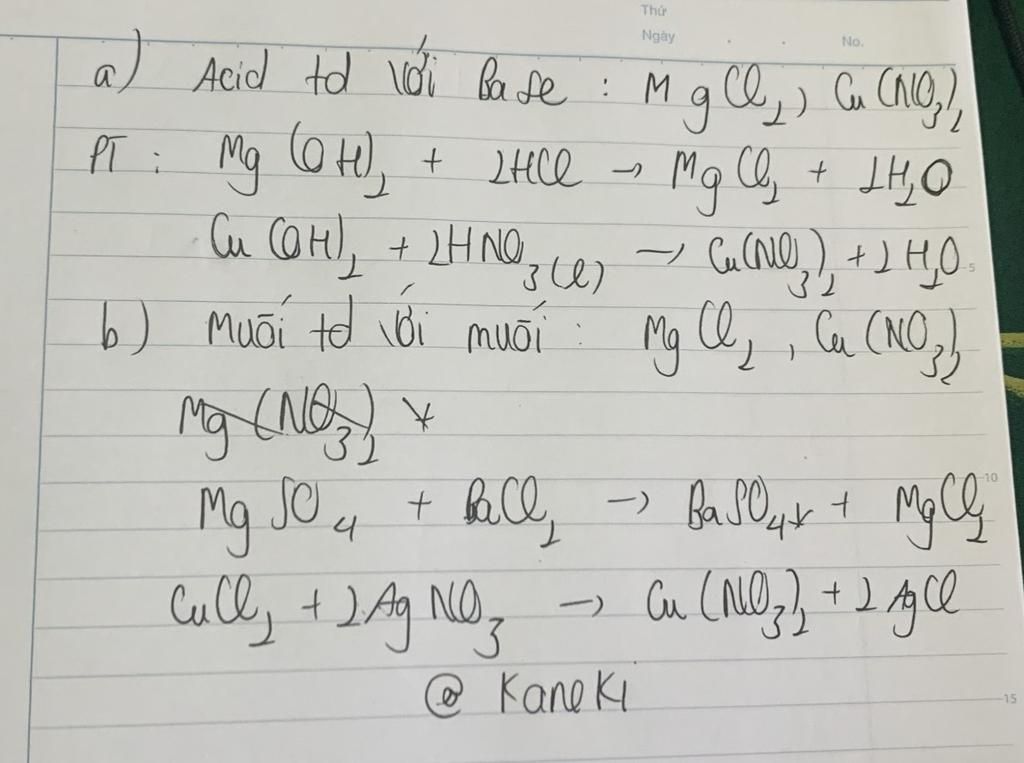 Thứ
Ngày . . No.
a) Acid td với Base : MgCl₂, Cu(NO₃)₂
PT : Mg(OH)₂ + 2HCl → MgCl₂ + 2H₂O
Cu(OH)₂ + 2HNO₃(l) → Cu(NO₃)₂ + 2H₂O
5
b) muối td với muối : MgCl₂, Cu(NO₃)₂
Mg(NO₃)₂
10
MgSO₄ + BaCl₂ → BaSO₄↓ + MgCl₂
CuCl₂ + 2AgNO₃ → Cu(NO₃)₂ + 2AgCl
@ Kaneki
15